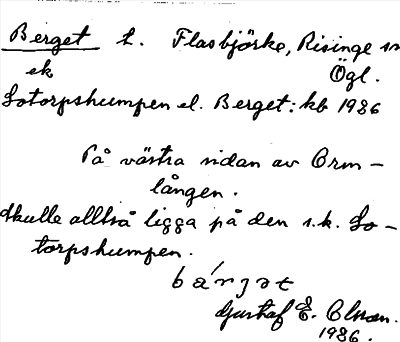 Berget t. Flasbjörke, Risinge sn
ek Ögl.
Sotorpshumpen el. Berget: kb 1986
På västra sidan av Orm-
lången.
Skulle alltså ligga på den s.k. So-
torpshumpen.
bárjət
Gustaf E. Olsson.
1986.